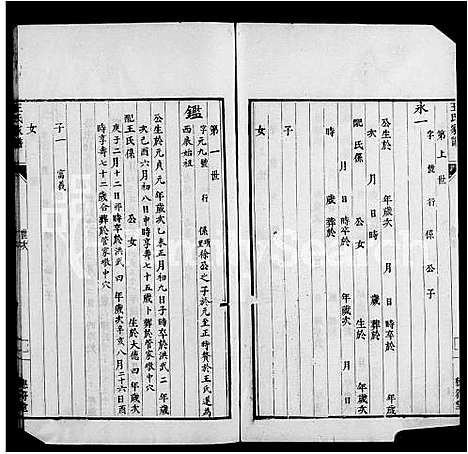 王氏家譜
第上世
永一
字 號 行 係 公子
公生於 年歲次 月 日 時卒於
次 月 日 時享 歲 葬於
配氏係 公女 生於 年歲次
月 日 時卒於 年歲次
月 日 時 歲葬
子
女
第一世
鑑
字元九號 行 係瑣徐公之子於元至正時贅於王氏遂為
西㡳始祖
公生於元貞元年歲次乙未正月初九日子時卒於洪武二年歲
次己酉六月初八日申時享壽七十五歲卜葬於管家墩中穴
配王氏係 公女 生於大德四年歲次
庚子二月十二日邜時卒於洪武四年歲次辛亥八月二十六日酉
時享壽七十二歲合葬於管家墩中穴
子一 富義
女
王氏家譜
世次